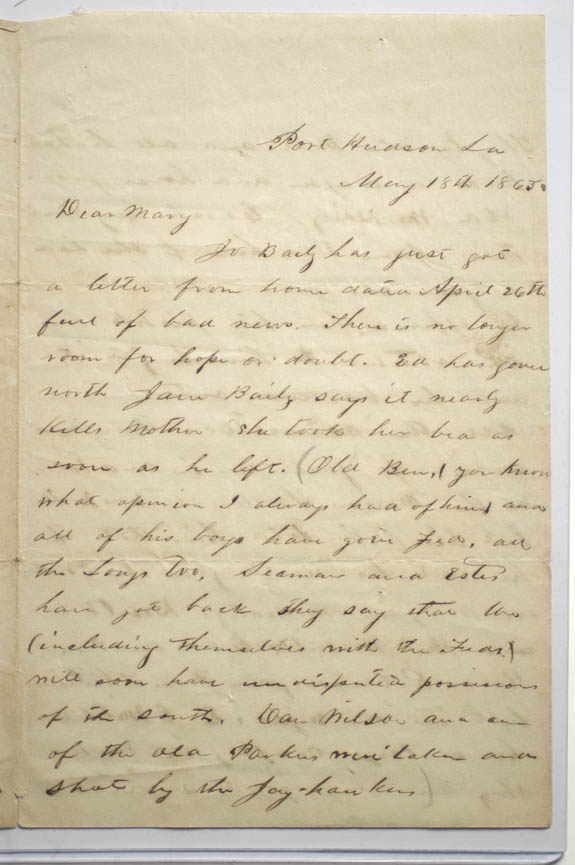 Port Hudson La
May 18th 1863.
Dear Mary
Jo Baily has just got
a letter from home dated April 26th
full of bad news. There is no longer
room for hope or doubt. Ed has gone
north Jane Baily says it nearly
kills Mother she took her bed as
soon as he left. (Old Ben, ( you know
what opinion I always had of him) and
all of his boys have gone Fed, all
the Longs too, Seaman and Estes
have got back they say that we
(including themselves with the Feds.)
will soon have undisputed possession
of the south. Dan Wilson and one
of the old Parkers were taken and
shot by the Jay-hawkers (